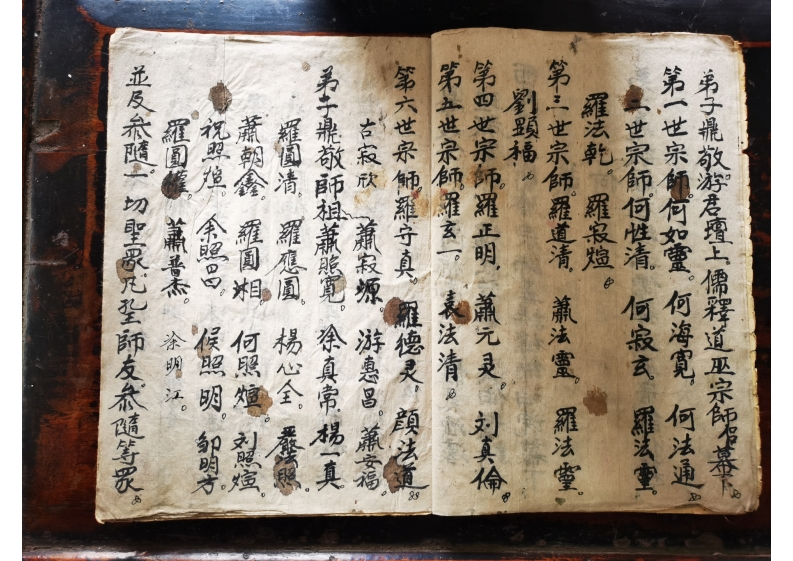 弟子鼎敬。游君壇上。儒釋道巫宗師侶幕下。
第一世宗師。何如靈。何海寬。何法通。
二世宗師。何性清。何寂玄。羅法靈。
羅法乾。羅寂煊。
第三世宗師。羅道清。蕭法靈。羅法靈。
劉顕福。
第四世宗師。羅正明。蕭元灵。刘真倫。
第五世宗師。羅玄一。袁法清。
第六世宗師。羅守真。羅德灵。顔法道。
古寂欣 蕭寂塬 游惠昌。蕭安福。
弟子鼎敬師祖。蕭照寬。涂真常。楊一真
羅圓清。羅應圓。楊心全。嚴法照。
蕭朝鑫。羅圓湘。何照煊。刘照煊。
祝照煊。余照四。候照明。邹明方。
羅圓。蕭普杰。涂明江。
並及參隨。一切聖眾。凡至師友。參隨等眾。